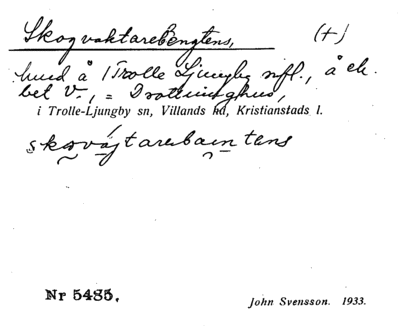 SkogvaktareBengtens, (+)
hmd å 1 Trolle Ljungby nfl., å ek.
bet V., = Drottninghus,
i Trolle-Ljungby sn, Villands hd, Kristianstads l.
skovájtarebaintens
Nr 5485. John Svensson. 1933.